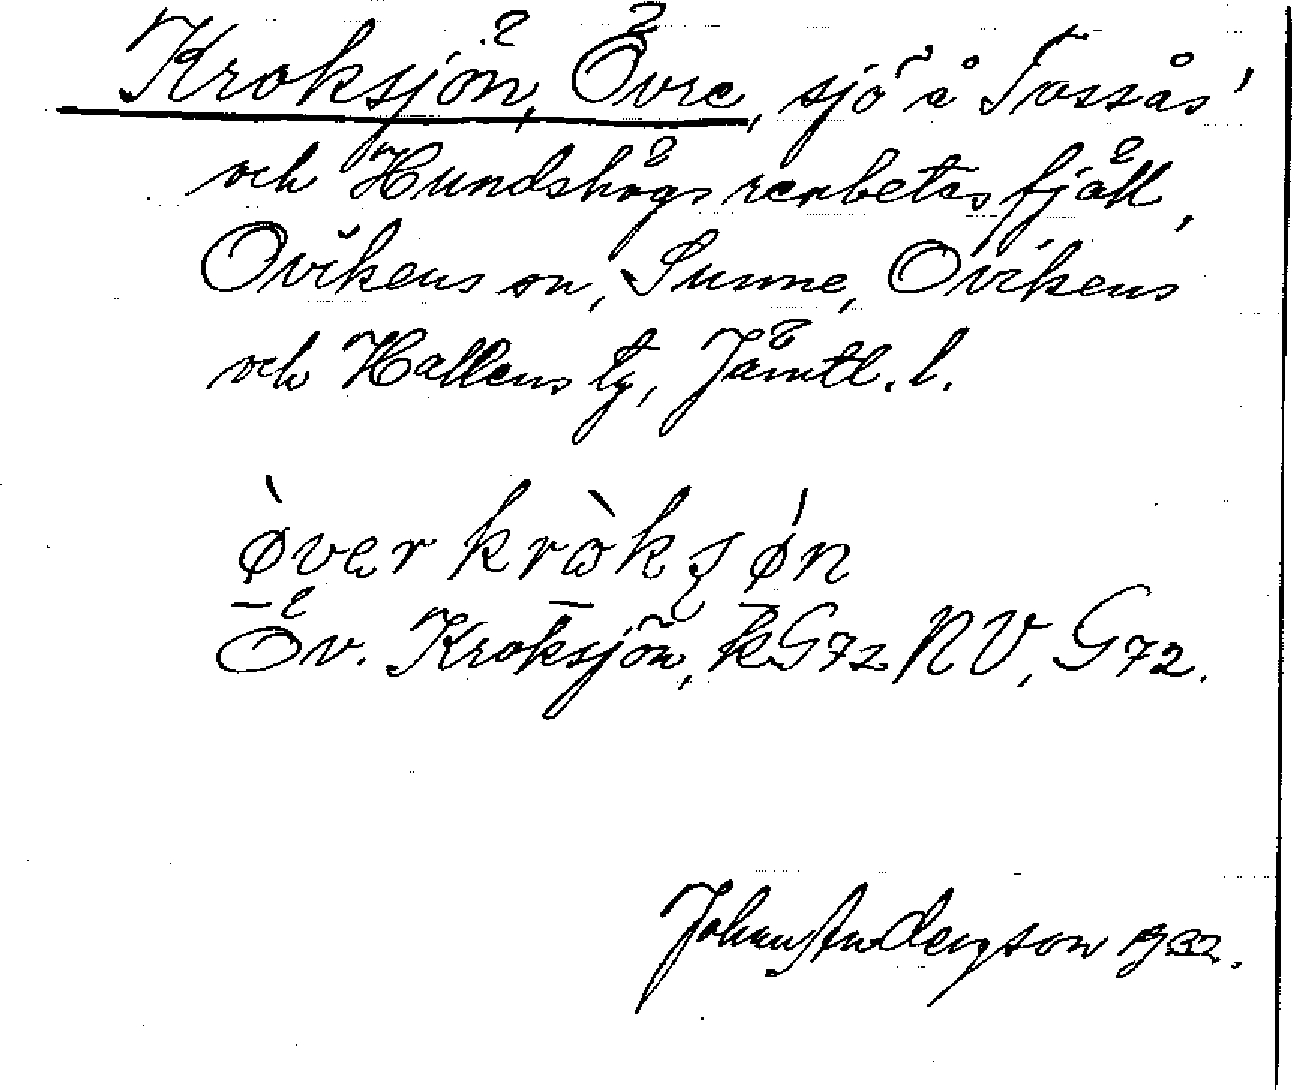 Kroksjön, Övre, sjö å Tossås'
och Hundshögs renbetesfjäll,
Ovikens sn, Sunne, Ovikens
och Hallens tg, Jämtl. l.
òvər kròksjǿn
Öv. Kroksjön, kG72 NV, G72.
Johan Anderzson 1932.